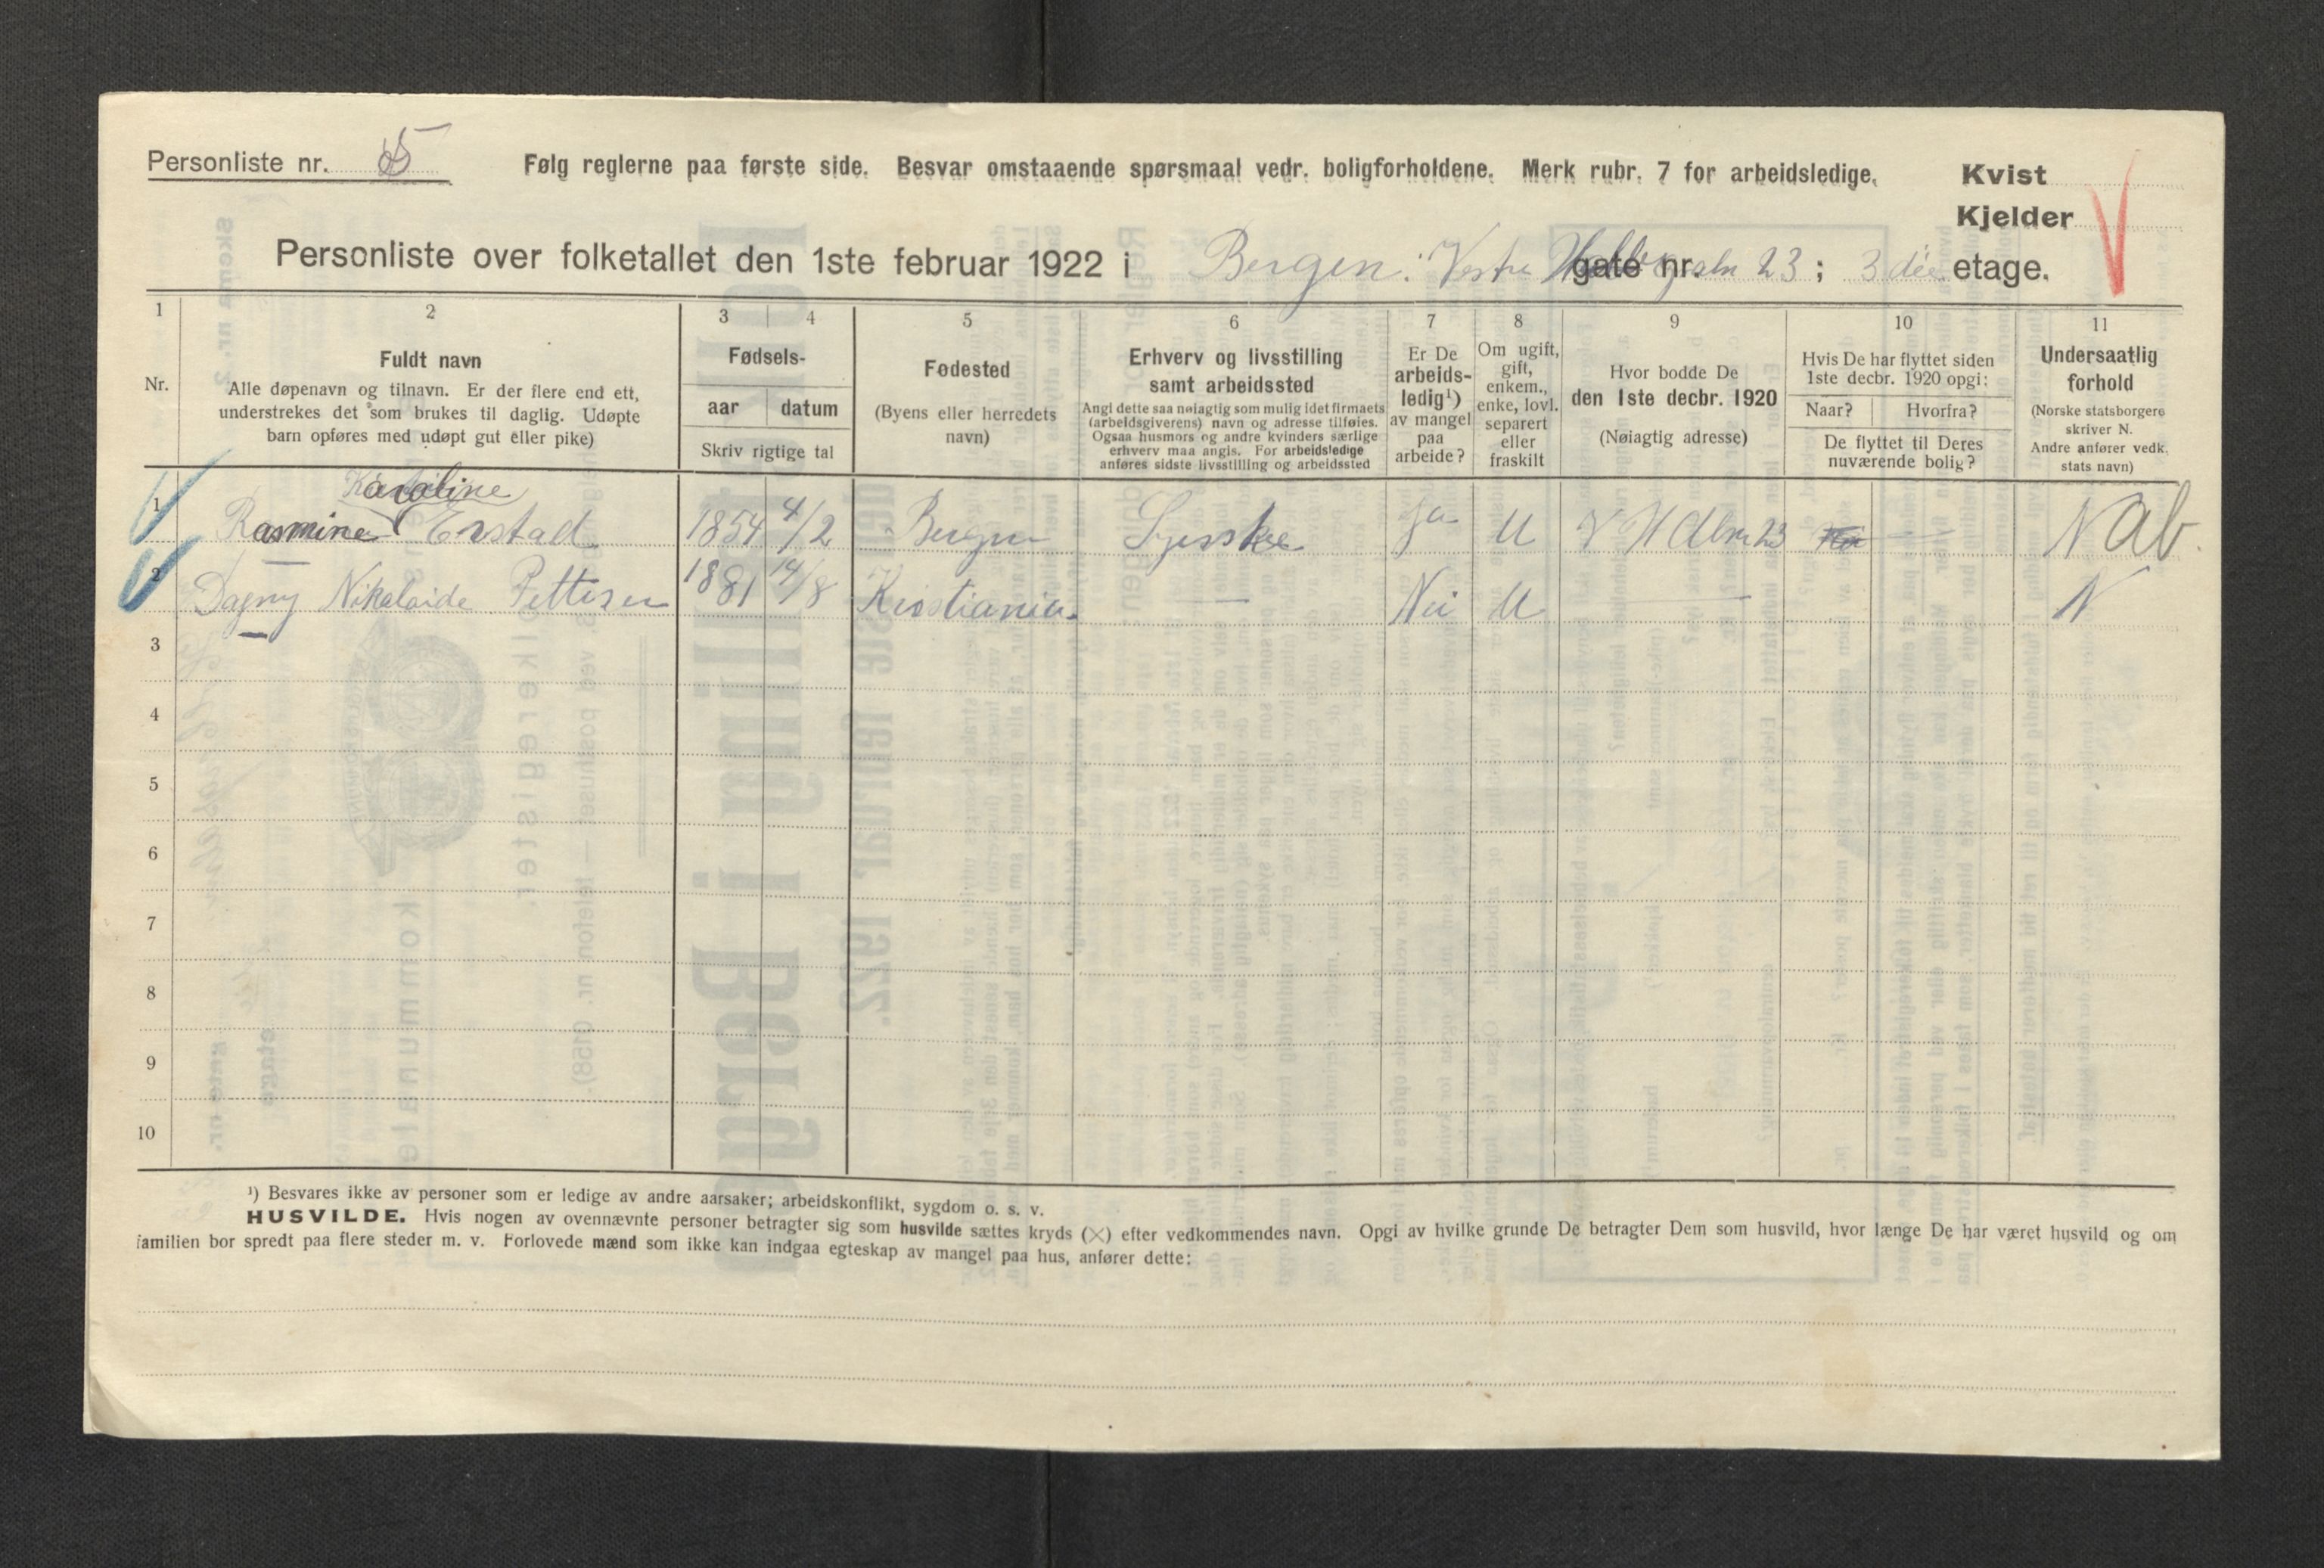 Personliste nr. 5
Følg reglerne paa første side. Besvar omstaaende spørsmaal vedr. boligforholdene. Merk rubr. 7 for arbeidsledige.
Kvist
Kjelder
Personliste over folketallet den 1ste februar 1922 i Bergen: Vestre gate nr. 23 ; 3die etage.
1 2 3 4 5 6 7 8 9 10 11
Nr.
Fuldt navn
Alle døpenavn og tilnavn. Er der flere end ett,
understrekes det som brukes til daglig. Udøpte
barn opføres med udøpt gut eller pike)
Fødsels-
aar datum
Skriv rigtige tal
Fødested
(Byens eller herredets
navn)
Erhverv og livsstilling
samt arbeidssted
Angi dette saa nøiagtig som mulig idet firmaets
(arbeidsgiverens) navn og adresse tilføies.
Ogsaa husmors og andre kvinders særlige
erhverv maa angis. For arbeidsledige
anføres sidste livsstilling og arbeidssted
Er De
arbeids-
ledig¹)
av mangel
paa
arbeide?
Om ugift,
gift,
enkem.,
enke, lovl.
separert
eller
fraskilt
Hvor bodde De
den 1ste decbr. 1920
(Nøiagtig adresse)
Hvis De har flyttet siden
1ste decbr. 1920 opgi:
Naar? Hvorfra?
De flyttet til Deres
nuværende bolig?
Undersaatlig
forhold
(Norske statsborgere
skriver N.
Andre anfører vedk.
stats navn)
Karoline
1 Rasmine Erstad 1854 4/2 Bergen Syerske Ja U 23 — N ab.
2 Dagny Nikolaide Pettersen 1881 14/8 Kristiania — Nei U — N
3
4
5
6
7
8
9
10
¹) Besvares ikke av personer som er ledige av andre aarsaker; arbeidskonflikt, sygdom o. s. v.
HUSVILDE. Hvis nogen av ovennævnte personer betragter sig som husvilde sættes kryds (×) efter vedkommendes navn. Opgi av hvilke grunde De betragter Dem som husvild, hvor længe De har været husvild og om
familien bor spredt paa flere steder m. v. Forlovede mænd som ikke kan indgaa egteskap av mangel paa hus, anfører dette: